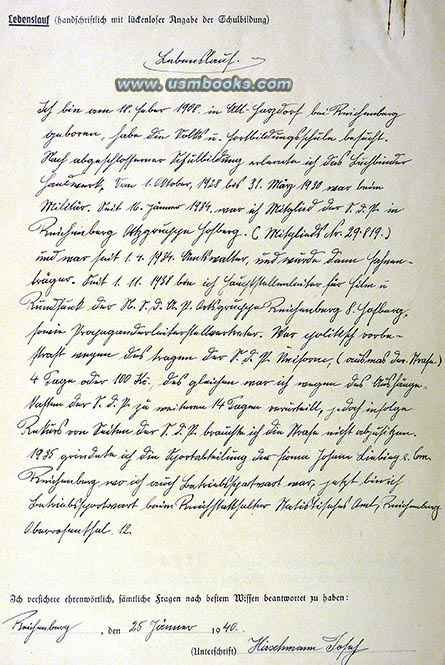 Lebenslauf (handschriftlich mit lückenloser Angabe der Schulbildung)
Lebenslauf.
www.usmbooks.com
Ich bin am 18. Feber 1908. in Alt Harzdorf bei Reichenberg
geboren, habe die Volks u. Fortbildungsschule besucht.
Nach abgeschlossener Schulbildung erlernte ich das Buchbinder
Handwerk. Vom 1. Oktober, 1928 bis 31. März 1930 war beim
Militär. Seit 16. Jänner 1934, war ich Mitglied der S.d.P. in
Reichenberg Ortsgruppe Hofberg. (Mitglieds Nr. 29.819.)
und war seit 1.4.1934. Amtswalter, und wurde dann Fahnen-
träger. Seit 1.11.1938 bin ich Hauptstellenleiter für Film u
Rundfunk der N.S.D.A.P. Ortsgruppe Reichenberg 8. Hofberg,
sowie Propagandaleiterstellvertreter. War politisch vorbe-
straft wegen des tragen der S.d.P. Uniform, (ausmas der Strafe)
4 Tage oder 100 Kc. des gleichen war ich wegen des Aushänge-
kasten der S.d.P. zu weiteren 14 Tagen verurteilt, jedoch infolge
Rekurs von Seiten der S.d.P. brauchte ich die Strafe nicht abzusitzen.
1935 gründete ich die Sportabteilung der firma Johann Liebieg & Com.
Reichenberg wo ich auch Betriebssportwart war, jetzt bin ich
Betriebssportwart beim Reichstatthalter Statistisches Amt, Reichenberg
Oberrosenthal 12.
Ich versichere ehrenwörtlich, sämtliche Fragen nach bestem Wissen beantwortet zu haben:
Reichenberg, den 25 Jänner 1940.
(Unterschrift) Josef